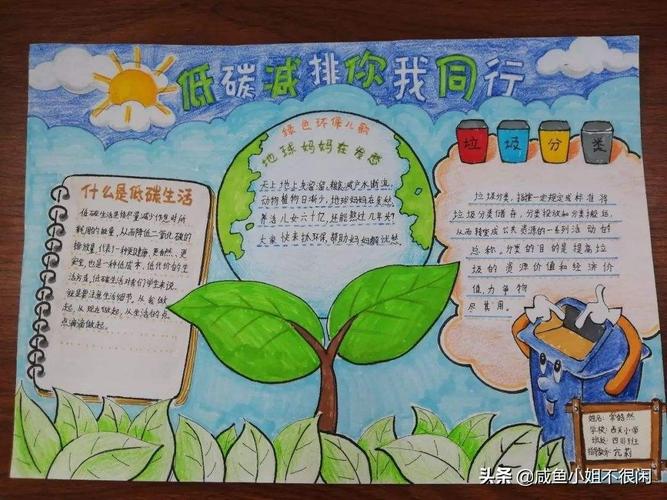 低碳减排你我同行
什么是低碳生活
低碳生活是指尽量减少作息时所
耗用的能量,从而降低二氧化碳的
排放量,代表了一种更健康、更自然、更
安全,也是一种低成本、低代价的生
活方式,低碳生活对我们学生来说,
就是要注意生活细节,从我做
起,从现在做起,从生活的点
点滴滴做起。
绿色环保儿歌
地球妈妈在发愁
天上地上臭溜溜,
动物植物日渐少,地球妈妈在发愁
养活儿女六十亿,还能熬过几年头?
大家快来抓环保,帮助妈妈解忧愁
垃圾分类
垃圾分类,指按一定规定或标准将
垃圾分类储存,分类投放和分类搬运,
从而转变成公共资源的一系列活动的
总称。分类的目的是提高垃
圾的资源价值和经济价
值,力争物
尽其用。
姓名:
学校:西关小学
班级:四(1)班
指导教师:
头条 @咸鱼小姐不很闲